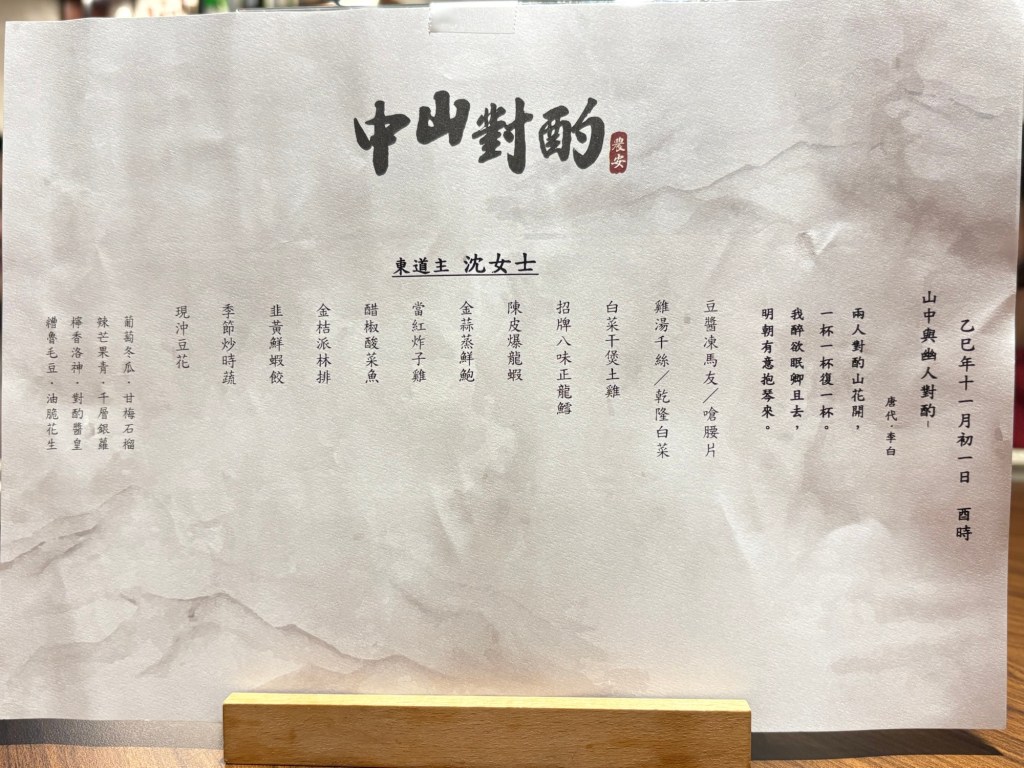 中山對酌
農安
東道主 沈女士
乙巳年十一月初一日 酉時
山中與幽人對酌-
唐代·李白
兩人對酌山花開，
一杯一杯復一杯。
我醉欲眠卿且去，
明朝有意抱琴來。
豆醬凍馬友／嗆腰片
雞湯千絲／乾隆白菜
白菜干煲土雞
招牌八味正龍鱈
陳皮爆龍蝦
金蒜蒸鮮鮑
當紅炸子雞
醋椒酸菜魚
金桔派林排
韭黃鮮蝦餃
季節炒時蔬
現沖豆花
葡萄冬瓜·甘梅石榴
辣芒果青·千層銀蘿
檸香洛神·對酌醬皇
糟魯毛豆·油脆花生